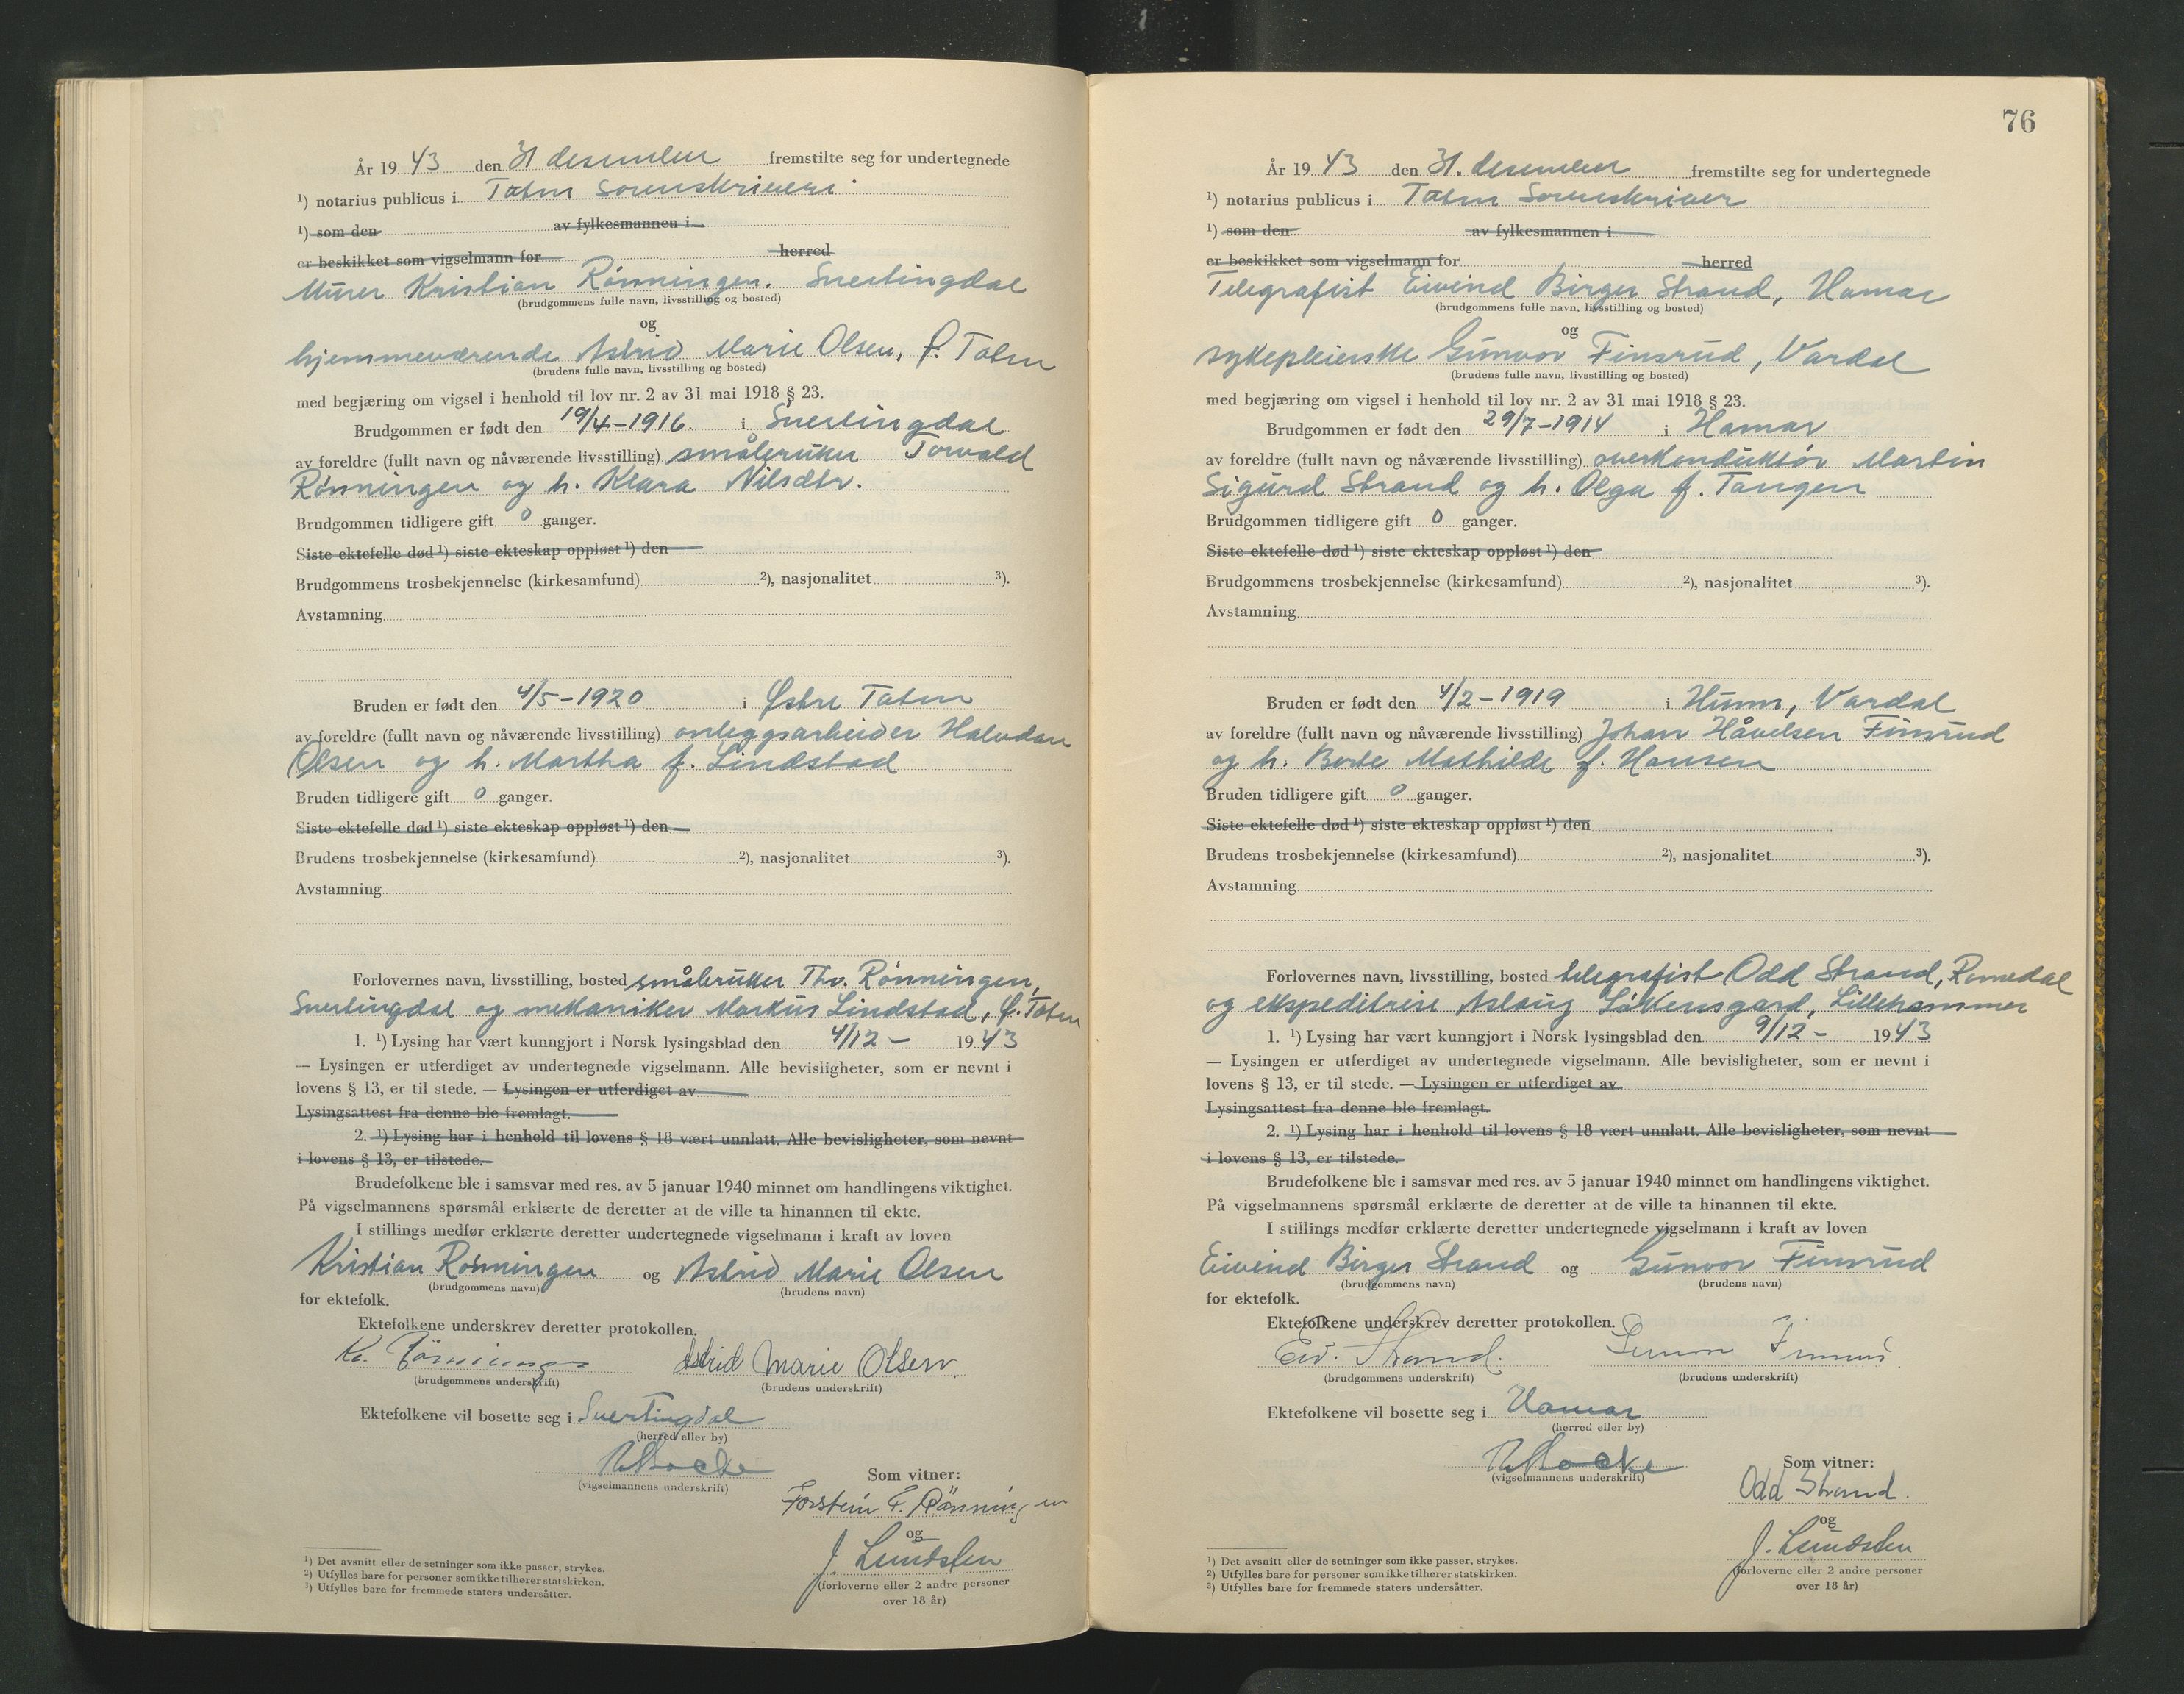 År 19 43 den 31 desember fremstilte seg for undertegnede
¹) notarius publicus i Toten Sorenskriveri
¹) som den av fylkesmannen i
er beskikket som vigselmann for herred
Murer Kristian Rønningen. Snertingdal
(brudgommens fulle navn, livsstilling og bosted)
og
hjemmeværende Astrid Marie Olsen, Ø. Toten
(brudens fulle navn, livsstilling og bosted)
med begjæring om vigsel i henhold til lov nr. 2 av 31 mai 1918 § 23.
Brudgommen er født den 19/4-1916 i Snertingdal
av foreldre (fullt navn og nåværende livsstilling) småbruker Torvald
Rønningen og h. Klara Nilsdtr.
Brudgommen tidligere gift 0 ganger.
Siste ektefelle død ¹) siste ekteskap oppløst ¹) den
Brudgommens trosbekjennelse (kirkesamfund) ²), nasjonalitet ³).
Avstamning
Bruden er født den 4/5-1920 i Østre Toten
av foreldre (fullt navn og nåværende livsstilling) anleggsarbeider Halvdan
Olsen og h. Martha f. Lindstad
Bruden tidligere gift 0 ganger.
Siste ektefelle død ¹) siste ekteskap oppløst ¹) den
Brudens trosbekjennelse (kirkesamfund) ²), nasjonalitet ³).
Avstamning
Forlovernes navn, livsstilling, bosted småbruker Thv. Rønningen,
Snertingdal og mekaniker Markus Lindstad, Ø. Toten
1. ¹) Lysing har vært kunngjort i Norsk lysingsblad den 4/12 - 19 43
— Lysingen er utferdiget av undertegnede vigselmann. Alle bevisligheter, som er nevnt i
lovens § 13, er til stede. — Lysingen er utferdiget av
Lysingsattest fra denne ble fremlagt.
2. ¹) Lysing har i henhold til lovens § 18 vært unnlatt. Alle bevisligheter, som nevnt
i lovens § 13, er tilstede.
Brudefolkene ble i samsvar med res. av 5 januar 1940 minnet om handlingens viktighet.
På vigselmannens spørsmål erklærte de deretter at de ville ta hinannen til ekte.
I stillings medfør erklærte deretter undertegnede vigselmann i kraft av loven
Kristian Rønningen og Astrid Marie Olsen
(brudgommens navn) (brudens navn)
for ektefolk.
Ektefolkene underskrev deretter protokollen.
Kr. Rønningen Astrid Marie Olsen.
(brudgommens underskrift) (brudens underskrift)
Ektefolkene vil bosette seg i Snertingdal
(herred eller by)
(vigselmannens underskrift)
Som vitner:
Torstein T. Rönningen
og
J. Lundsten
(forloverne eller 2 andre personer
over 18 år)
¹) Det avsnitt eller de setninger som ikke passer, strykes.
²) Utfylles bare for personer som ikke tilhører statskirken.
³) Utfylles bare for fremmede staters undersåtter.
76
År 19 43 den 31. desember fremstilte seg for undertegnede
¹) notarius publicus i Toten Sorenskriver
¹) som den av fylkesmannen i
er beskikket som vigselmann for herred
Telegrafist Eivind Birger Strand, Hamar
(brudgommens fulle navn, livsstilling og bosted)
og
sykepleierske Gunvor Finsrud, Vardal
(brudens fulle navn, livsstilling og bosted)
med begjæring om vigsel i henhold til lov nr. 2 av 31 mai 1918 § 23.
Brudgommen er født den 29/7-1914 i Hamar
av foreldre (fullt navn og nåværende livsstilling) overkonduktør Martin
Sigurd Strand og h. Olga f. Tangen
Brudgommen tidligere gift 0 ganger.
Siste ektefelle død ¹) siste ekteskap oppløst ¹) den
Brudgommens trosbekjennelse (kirkesamfund) ²), nasjonalitet ³).
Avstamning
Bruden er født den 4/2-1919 i Hunn, Vardal
av foreldre (fullt navn og nåværende livsstilling) Johan Håvelsen Finsrud
og h. Berte Mathilde f. Hansen
Bruden tidligere gift 0 ganger.
Siste ektefelle død ¹) siste ekteskap oppløst ¹) den
Brudens trosbekjennelse (kirkesamfund) ²), nasjonalitet ³).
Avstamning
Forlovernes navn, livsstilling, bosted telegrafist Odd Strand, Romedal
og ekspeditrise Aslaug Løkensgard, Lillehammer
1. ¹) Lysing har vært kunngjort i Norsk lysingsblad den 9/12 - 19 43
— Lysingen er utferdiget av undertegnede vigselmann. Alle bevisligheter, som er nevnt i
lovens § 13, er til stede. — Lysingen er utferdiget av
Lysingsattest fra denne ble fremlagt.
2. ¹) Lysing har i henhold til lovens § 18 vært unnlatt. Alle bevisligheter, som nevnt
i lovens § 13, er tilstede.
Brudefolkene ble i samsvar med res. av 5 januar 1940 minnet om handlingens viktighet.
På vigselmannens spørsmål erklærte de deretter at de ville ta hinannen til ekte.
I stillings medfør erklærte deretter undertegnede vigselmann i kraft av loven
Eivind Birger Strand og Gunvor Finsrud
(brudgommens navn) (brudens navn)
for ektefolk.
Ektefolkene underskrev deretter protokollen.
Eiv. Strand. Gunvor Finsrud.
(brudgommens underskrift) (brudens underskrift)
Ektefolkene vil bosette seg i Hamar
(herred eller by)
(vigselmannens underskrift)
Som vitner:
Odd Strand.
og
J. Lundsten
(forloverne eller 2 andre personer
over 18 år)
¹) Det avsnitt eller de setninger som ikke passer, strykes.
²) Utfylles bare for personer som ikke tilhører statskirken.
³) Utfylles bare for fremmede staters undersåtter.